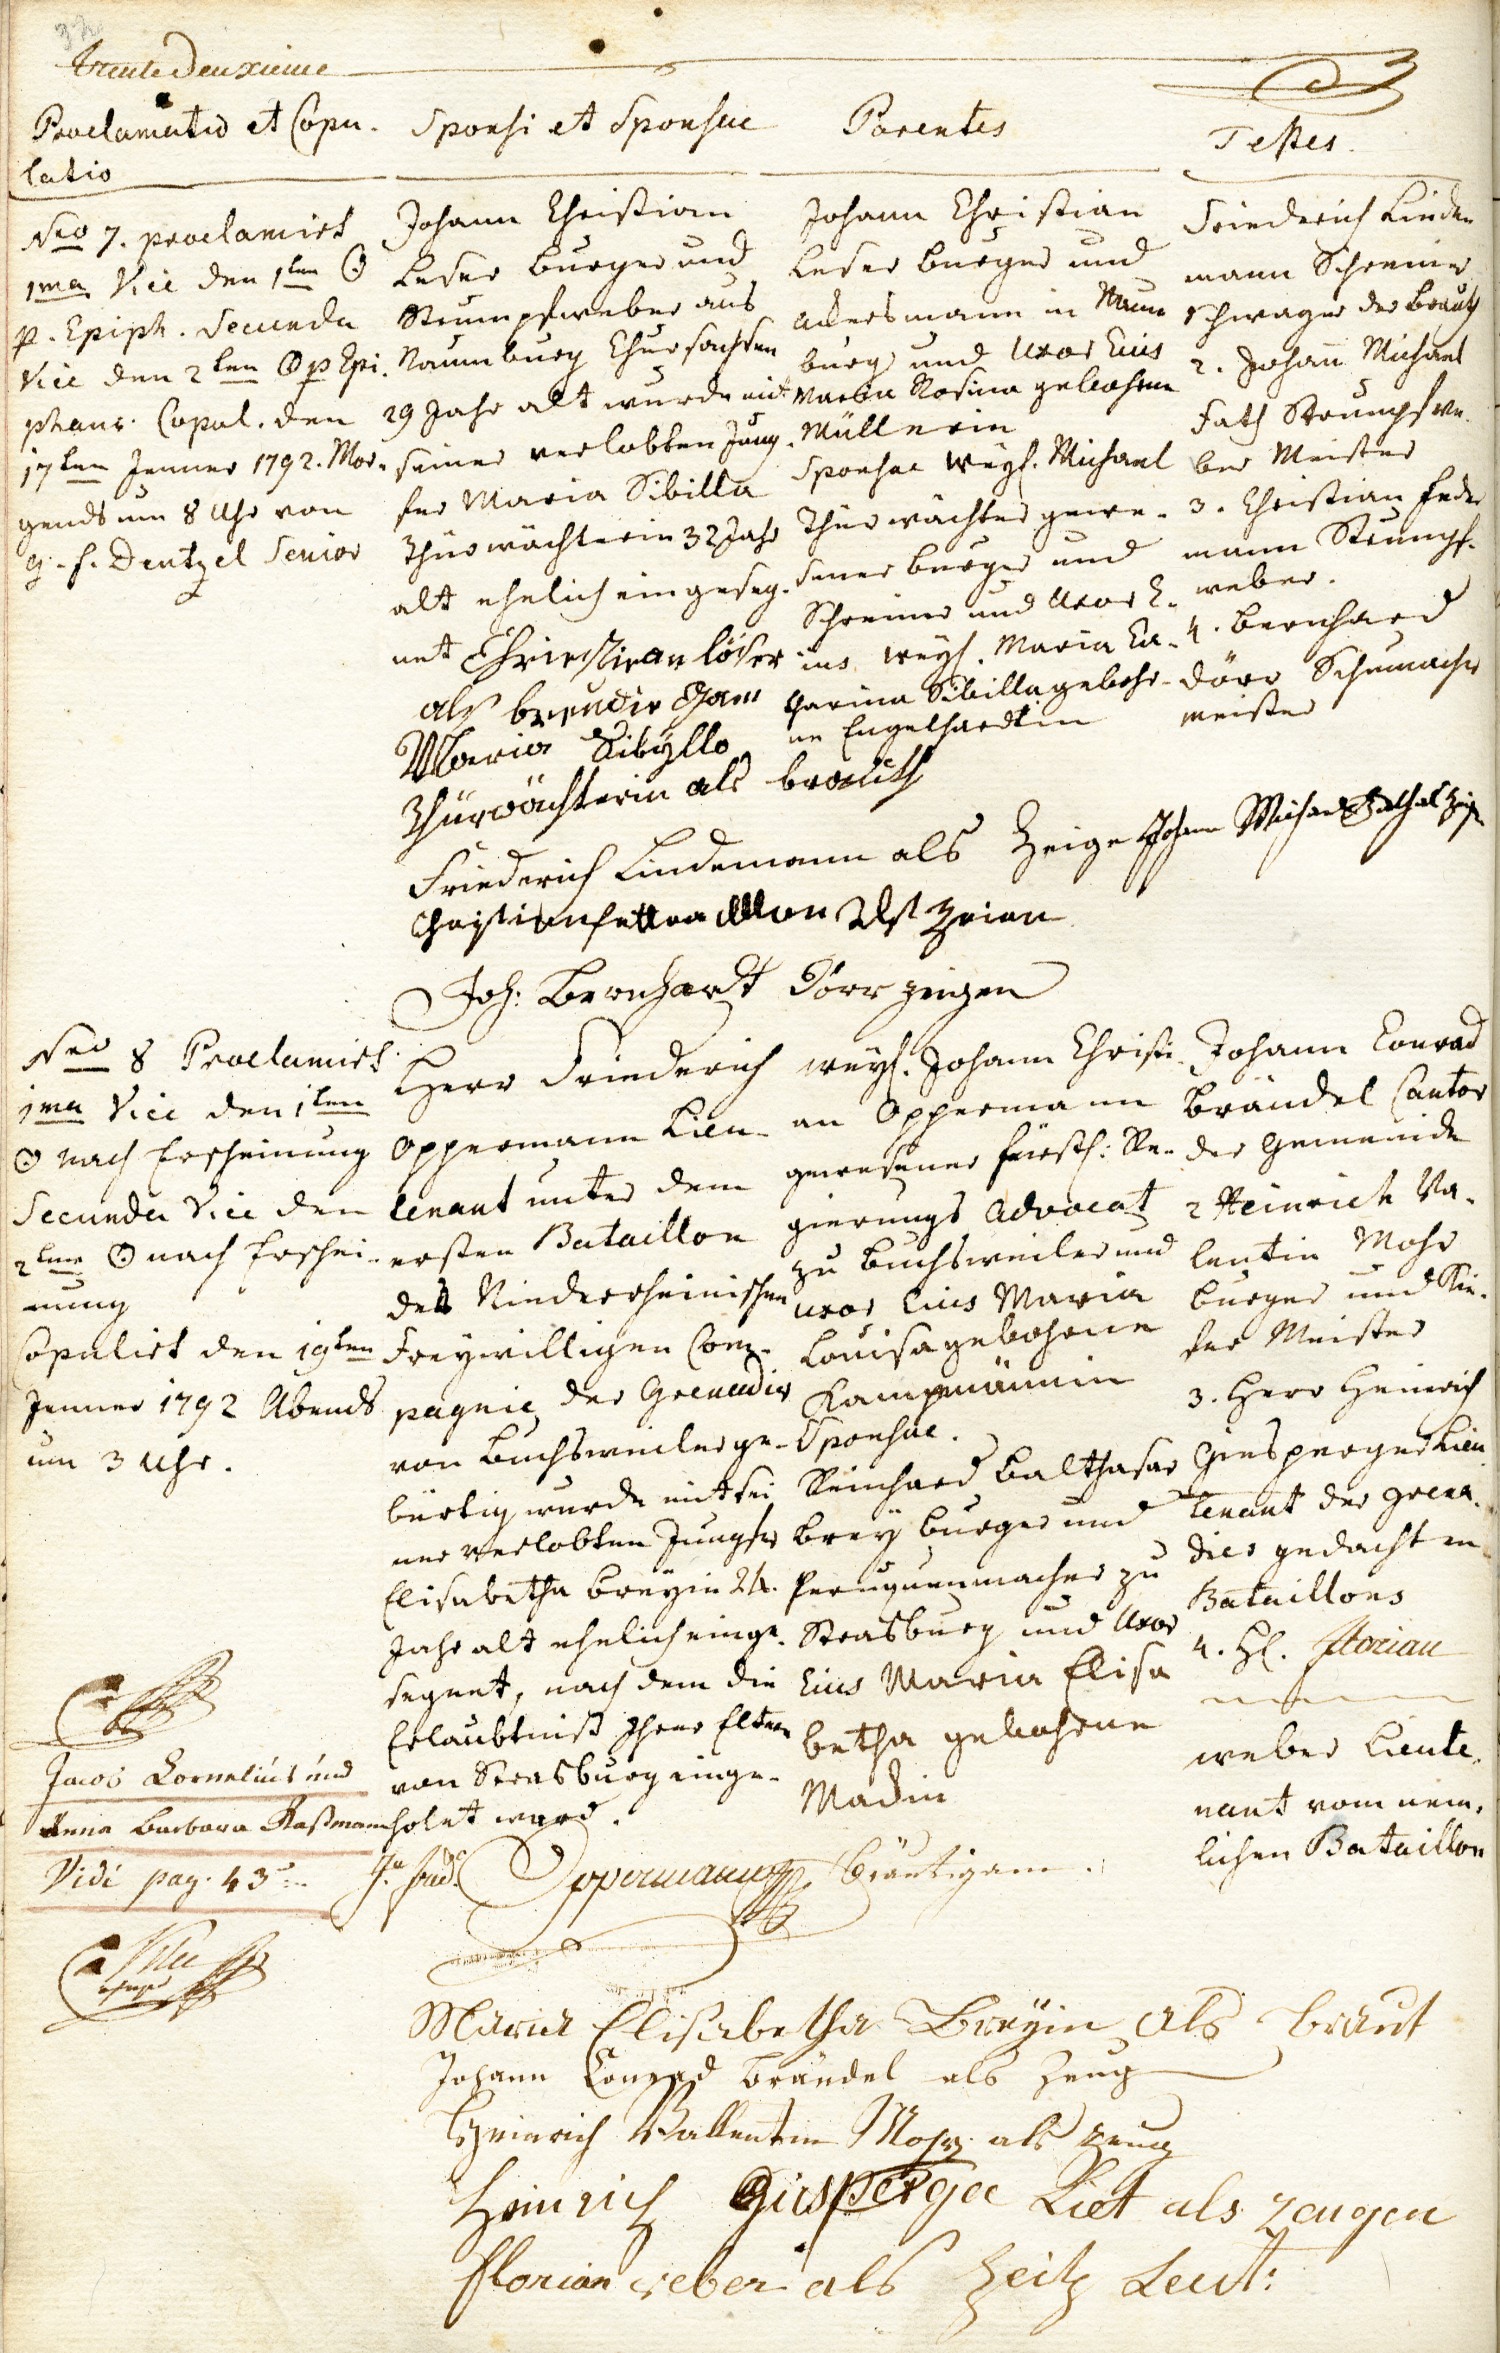 32
trente deuxieme
Proclamatio et Copu-
latio
Sponsi et Sponsae
Parentes
Testes.
Nro 7. proclamirt
1ma Vice den 1ten ☉
p. Epiph. Secunda
Vice den 2ten ☉ p Epi.
phan. Copul. den
17ten Jenner 1792. Mor-
gends um 8 Uhr von
G. F. Dentzel Senior
Johann Christian
Leser burger und
Strumpfweber aus
Naumburg Chursachsen
29 Jahr alt wurde mit
seiner verlobten Jung-
fer Maria Sibilla
Thürwächterin 32 Jahr
alt ehelich eingeseg-
net Christian löser
als breutigam
Maria Sibylla
Thürwächterin als brauth
Johann Christian
Leser burger und
Ackersmann in Naum
burg und Uxor Eius
Maria Rosina gebohrne
Müllerin
Sponsae weyl. Michael
Thürwächter gewe-
sener burger und
Schreiner und Uxor E-
ius weyl. Maria Ca-
tharina Sibilla gebohr-
ne Engelhardtin
Friederich Linden
mann Schreiner
Schwager der Brauth
2. Johann Michael
Fath Strumpfwe-
ber Meister
3. Christian Feder
mann Strumpf-
weber.
4. bernhard
Dörr Schumacher
meister
Friederich Lindemann als Zeige Johann Michael Fath als Zeig
Christian als Zeien
Joh: Bernhardt Dörr zeigen
Nro 8 Proclamirt
1ma Vice den 1ten
☉ nach Erscheinung
Secunda Vice den
2ten ☉ nach Erschei-
nung
Copulirt den 19ten
Jenner 1792 Abends
um 3 Uhr.
Herr Friederich
Oppermann Lieu-
tenant unter dem
ersten Bataillon
des Niederrheinischen
Freywilligen Com-
pagnie der Grenadir
von Buchsweiler ge-
bürtig wurde mit sei
ner verlobten Jungfer
Elisabetha Breyin 24.
Jahr alt ehelich einge-
segnet, nach dem die
Erlaubtniß Ihrer Eltern
von Strasburg einge-
holet ward.
weyl. Johann Christi-
an Oppermann
gewesener fürstl: Re-
gierungs Advocat
zu Buchsweiler und
uxor Eius Maria
Louisa gebohrne
Kampmännin
Sponsae.
Reinhard Balthasar
Brey burger und
Peruquenmacher zu
Strasburg und Uxor
Eius Maria Elisa
betha gebohrne
Madin
Johann Conrad
Brändel Cantor
der Gemeinde
2 Heinrich Va-
lentin Mohr
burger und Kie-
fer Meister
3. Herr Heinrich
Giesperger Lieu
tenant der grena-
dier gedachten
Bataillons
4. H. Florian
weber Lieute-
nant vom nem-
lichen Bataillon
Jacob Cornelius und
Anna Barbara Kaßmann
Vidi pag. 43
Jn. frid. Oppermann Bräutigam.
Maria Elisabetha Breyin als braut
Johann Conrad Brändel als Zeug
Heinrich Vallentin Mohr als zeug
Heinrich Giesperger Liet als zeugen
florian veber als Zeitz Leut: